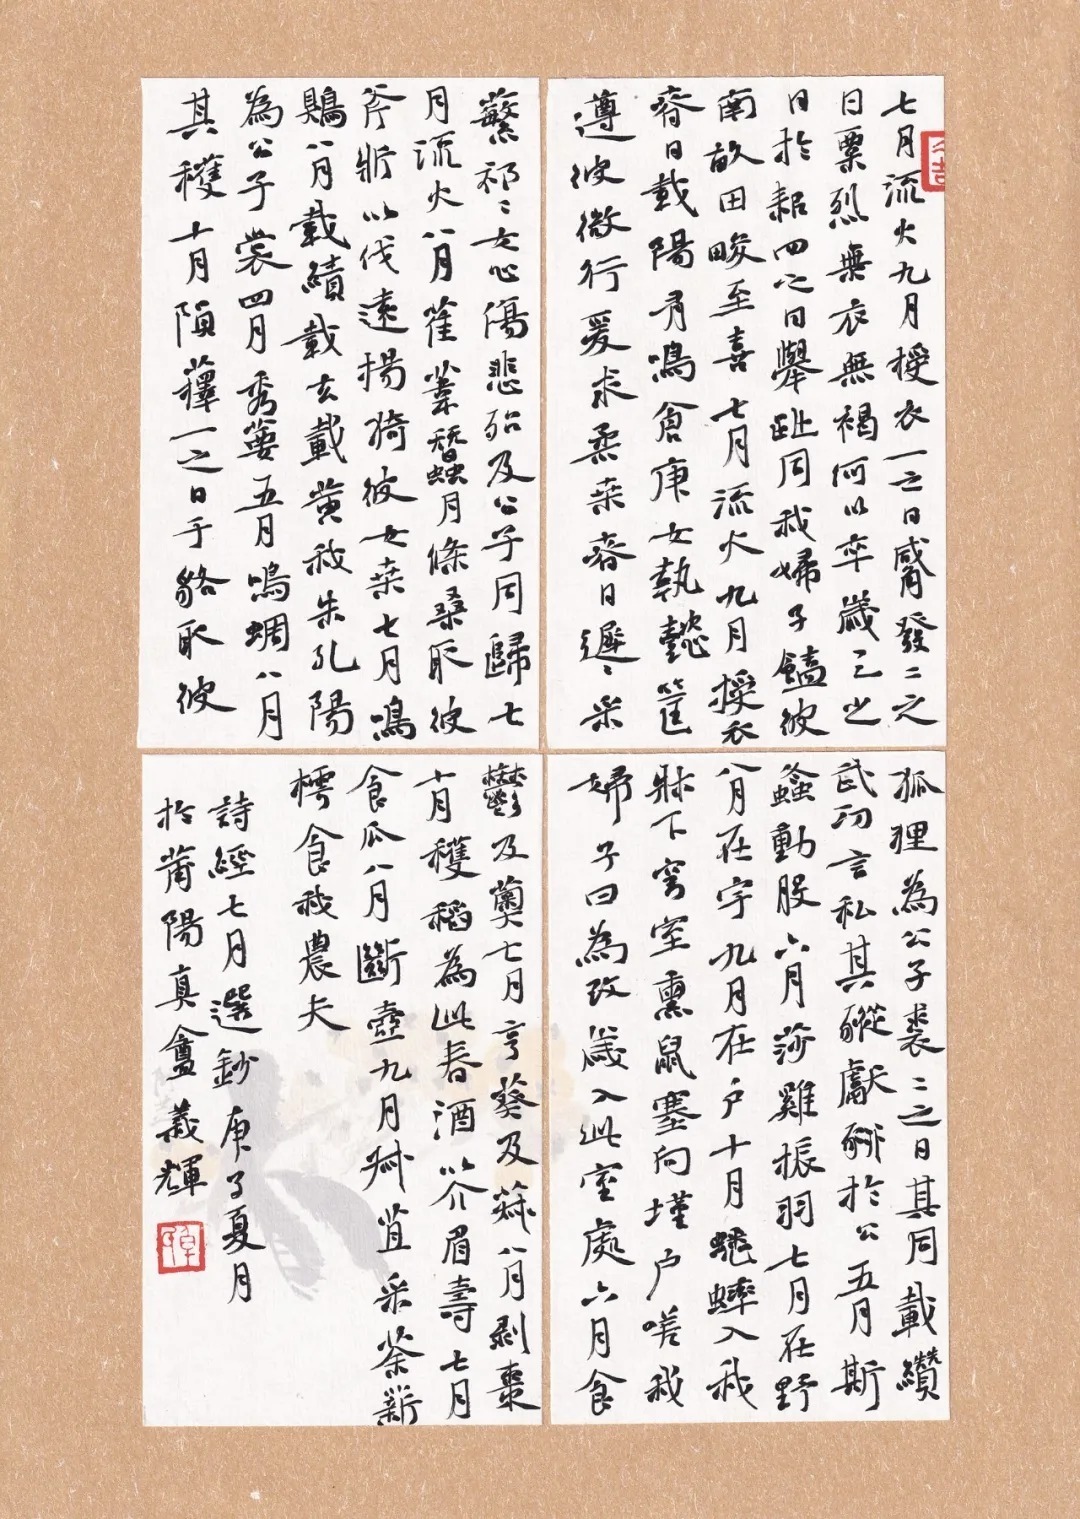 七月流火九月授衣一之日觱發二之
日栗烈無衣無褐何以卒歲三之
日於耜四之日舉趾同我婦子饁彼
南畝田畯至喜七月流火九月授衣
春日載陽有鳴倉庚女執懿筐
遵彼微行爰求柔桑春日遲〻采
蘩祁〻女心傷悲殆及公子同歸七
月流火八月萑葦蠶月條桑取彼
斧斨以伐遠揚猗彼女桑七月鳴
鵙八月載績載玄載黃我朱孔陽
為公子裳四月秀葽五月鳴蜩八月
其穫十月隕蘀一之日于貉取彼
狐狸為公子裘二之日其同載纘
武功言私其豵獻豜於公五月斯
螽動股六月莎雞振羽七月在野
八月在宇九月在户十月蟋蟀入我
牀下穹窒熏鼠塞向墐户嗟我
婦子曰為改歲入此室處六月食
鬱及薁七月亨葵及菽八月剥棗
十月穫稻為此春酒以介眉壽七月
食瓜八月斷壺九月叔苴采荼薪
樗食我農夫
詩經七月選鈔庚子夏月
於莆陽真盦義輝